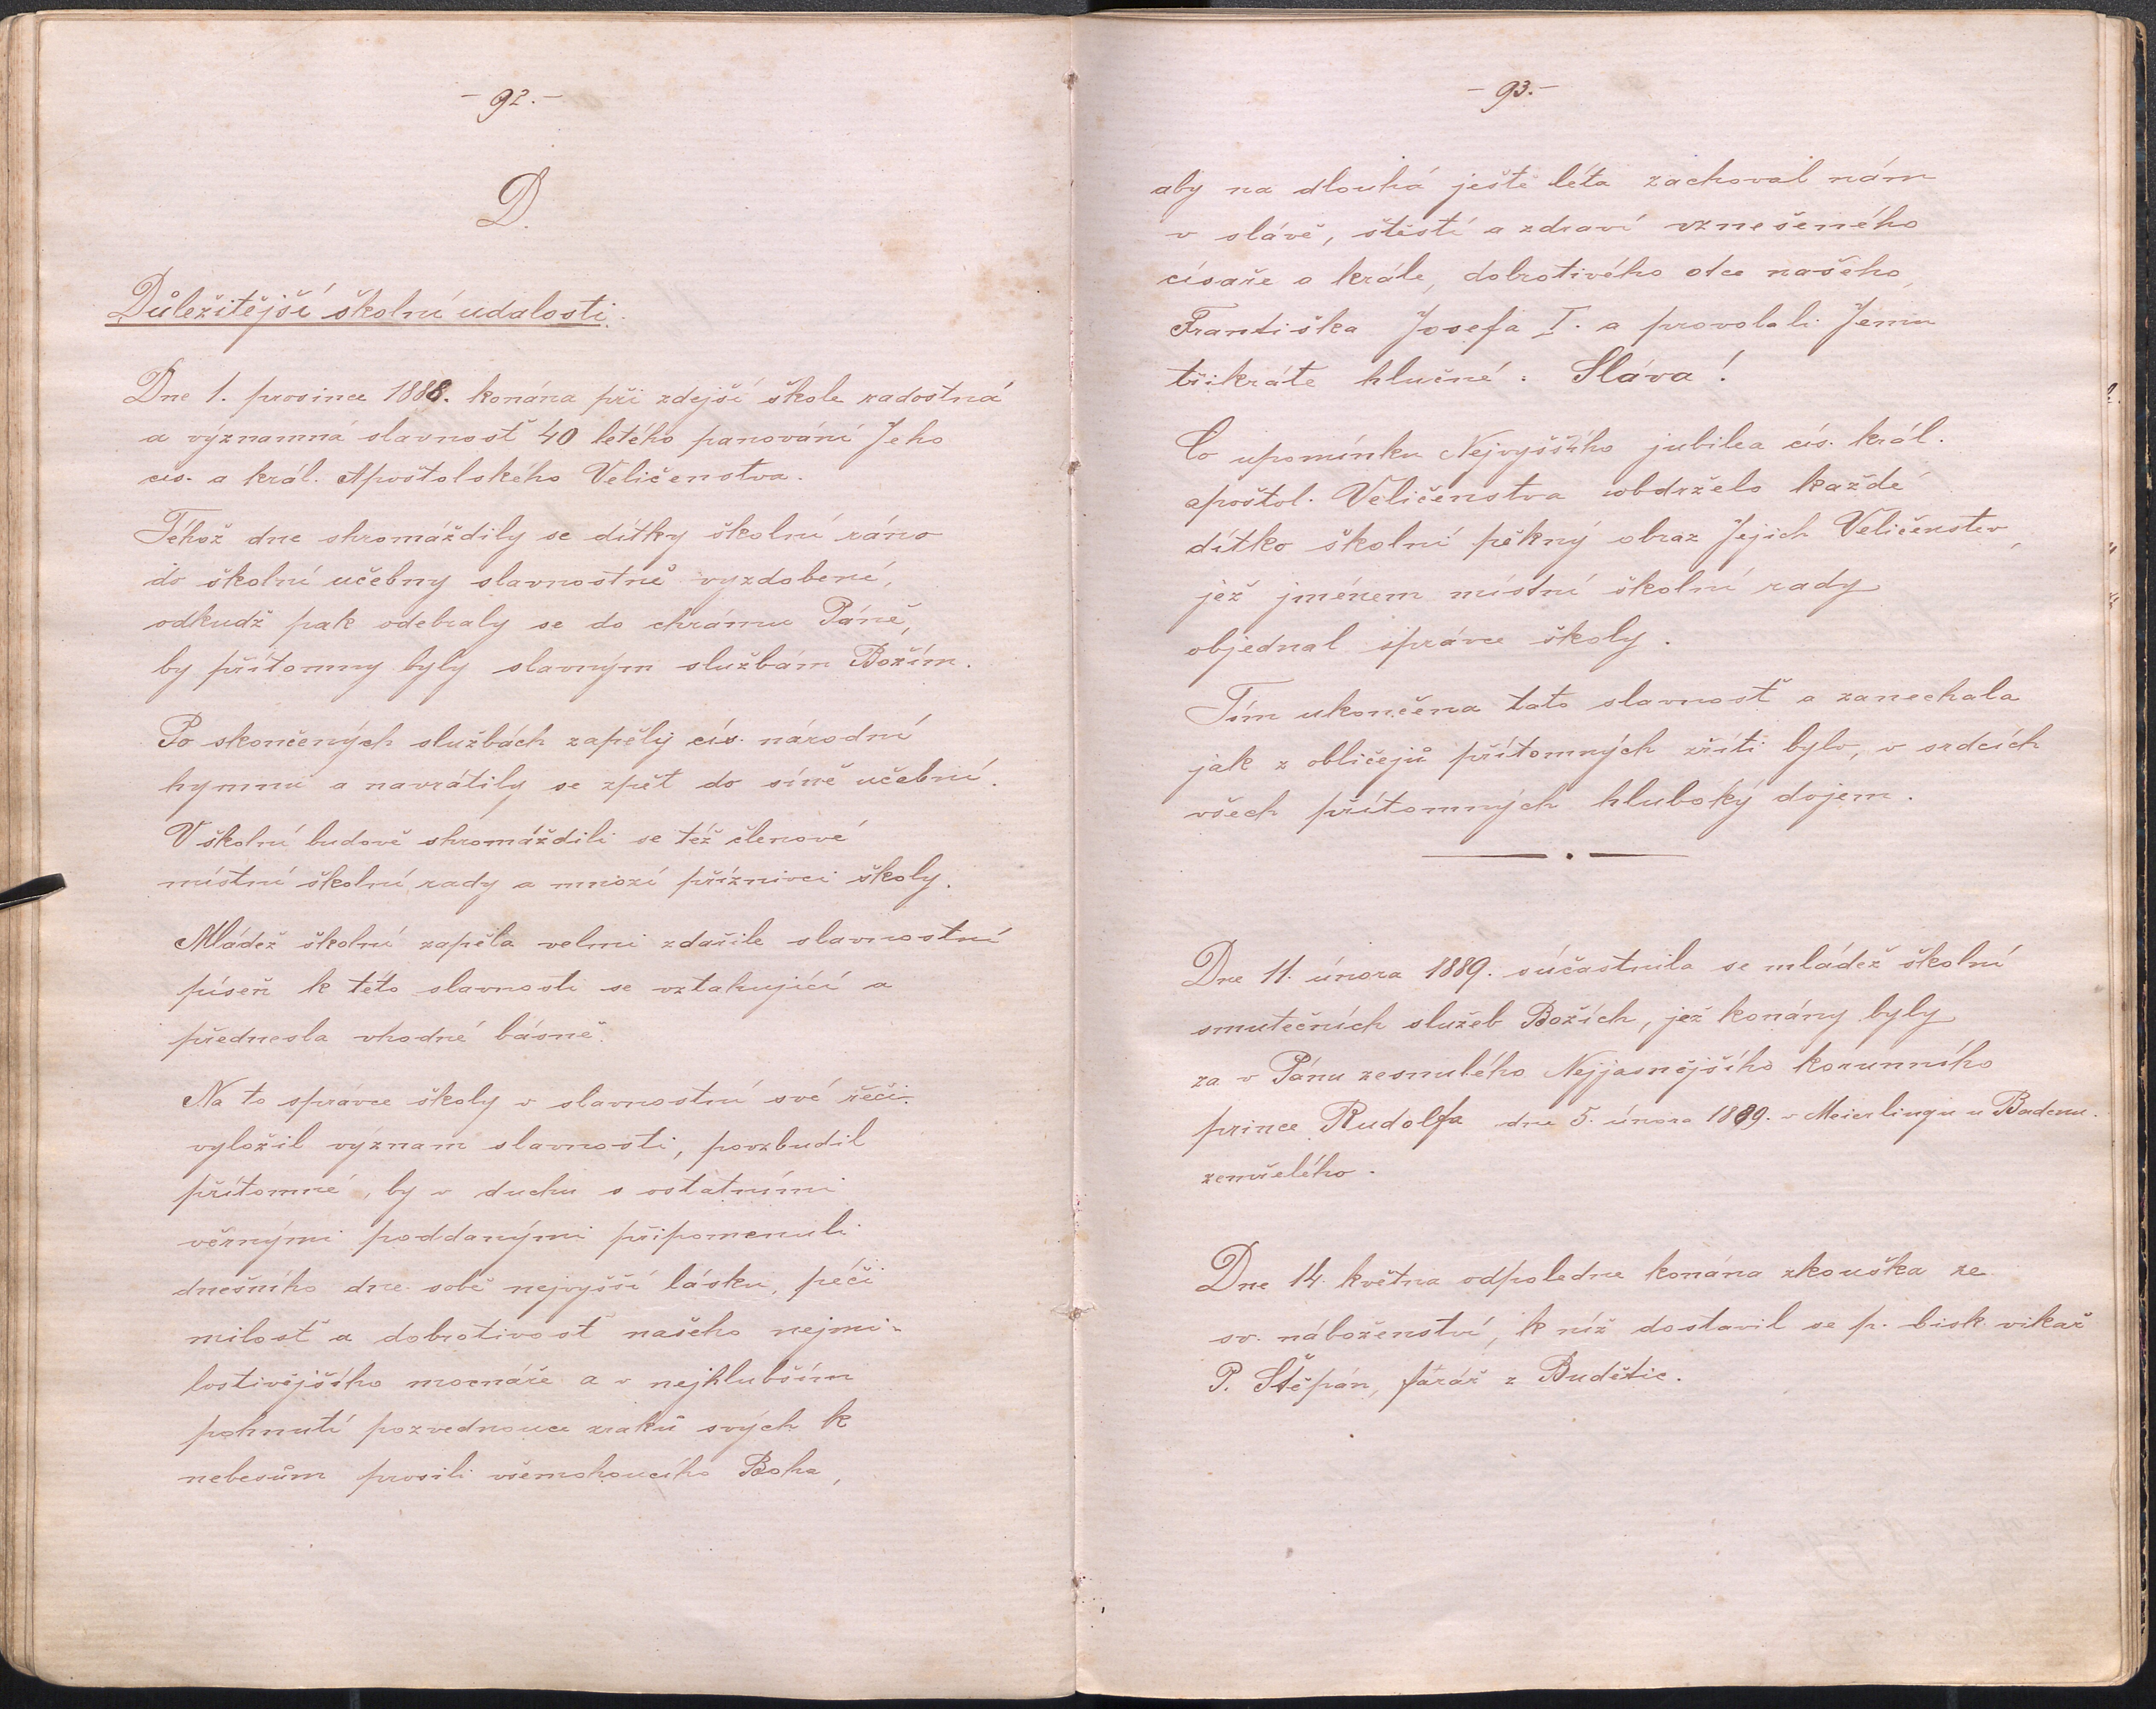 - 92. -
D.
Důležitější školní udalosti.
Dne 1. prosince 1888. konána při zdejší škole radostná
a významná slavnosť 40 letého panování Jeho
cís. a král. Apoštolského Veličenstva.
Téhož dne shromáždily se dítky školní ráno
do školní učebny slavnostně vyzdobené,
odkudž pak odebraly se do chrámu Páně,
by přítomny byly slavným službám Božím.
Po skončených službách zapěly cís. národní
hymnu a navrátily se zpět do síně učební.
V školní budově shromáždili se též členové
místní školní rady a mnozí příznivci školy.
Mládež školní zapěla velmi zdařile slavnostní
píseň k této slavnosti se vztahující a
přednesla vhodné básně.
Na to správce školy v slavnostní své řeči
vyložil význam slavnosti, povzbudil
přítomné, by v duchu s ostatními
věrnými poddanými připomenuli
dnešního dne sobě nejvyšší lásku, péči
milosť a dobrotivosť našeho nejmi-
lostivějšího mocnáře a v nejhlubším
pohnutí pozvednouce zraků svých k
nebesům prosili všemohoucího Boha,
- 93. -
aby na dlouhá ještě léta zachoval nám
v slávě, štěstí a zdraví vznešeného
císaře a krále, dobrotivého otce našeho,
Františka Josefa I. a provolali Jemu
třikráte hlučné: Sláva!
Co upomínku Nejvyššího jubilea cís. král.
apoštol. Veličenstva obdrželo každé
dítko školní pěkný obraz Jejich Veličenstev,
jež jménem místní školní rady
objednal správce školy.
Tím ukončena tato slavnosť a zanechala
jak z obličejů přítomných zříti bylo, v srdcích
všech přítomných hluboký dojem.
Dne 11. února 1889. súčastnila se mládež školní
smutečních služeb Božích, jež konány byly
za v Pánu zesnulého Nejjasnějšího korunního
prince Rudolfa dne 5. února 1889. v Meierlingu u Badenu
zemřelého.
Dne 14. května odpoledne konána zkouška ze
sv. náboženství, k níž dostavil se p. bisk. vikář
P. Štěpán, farář z Budětic.